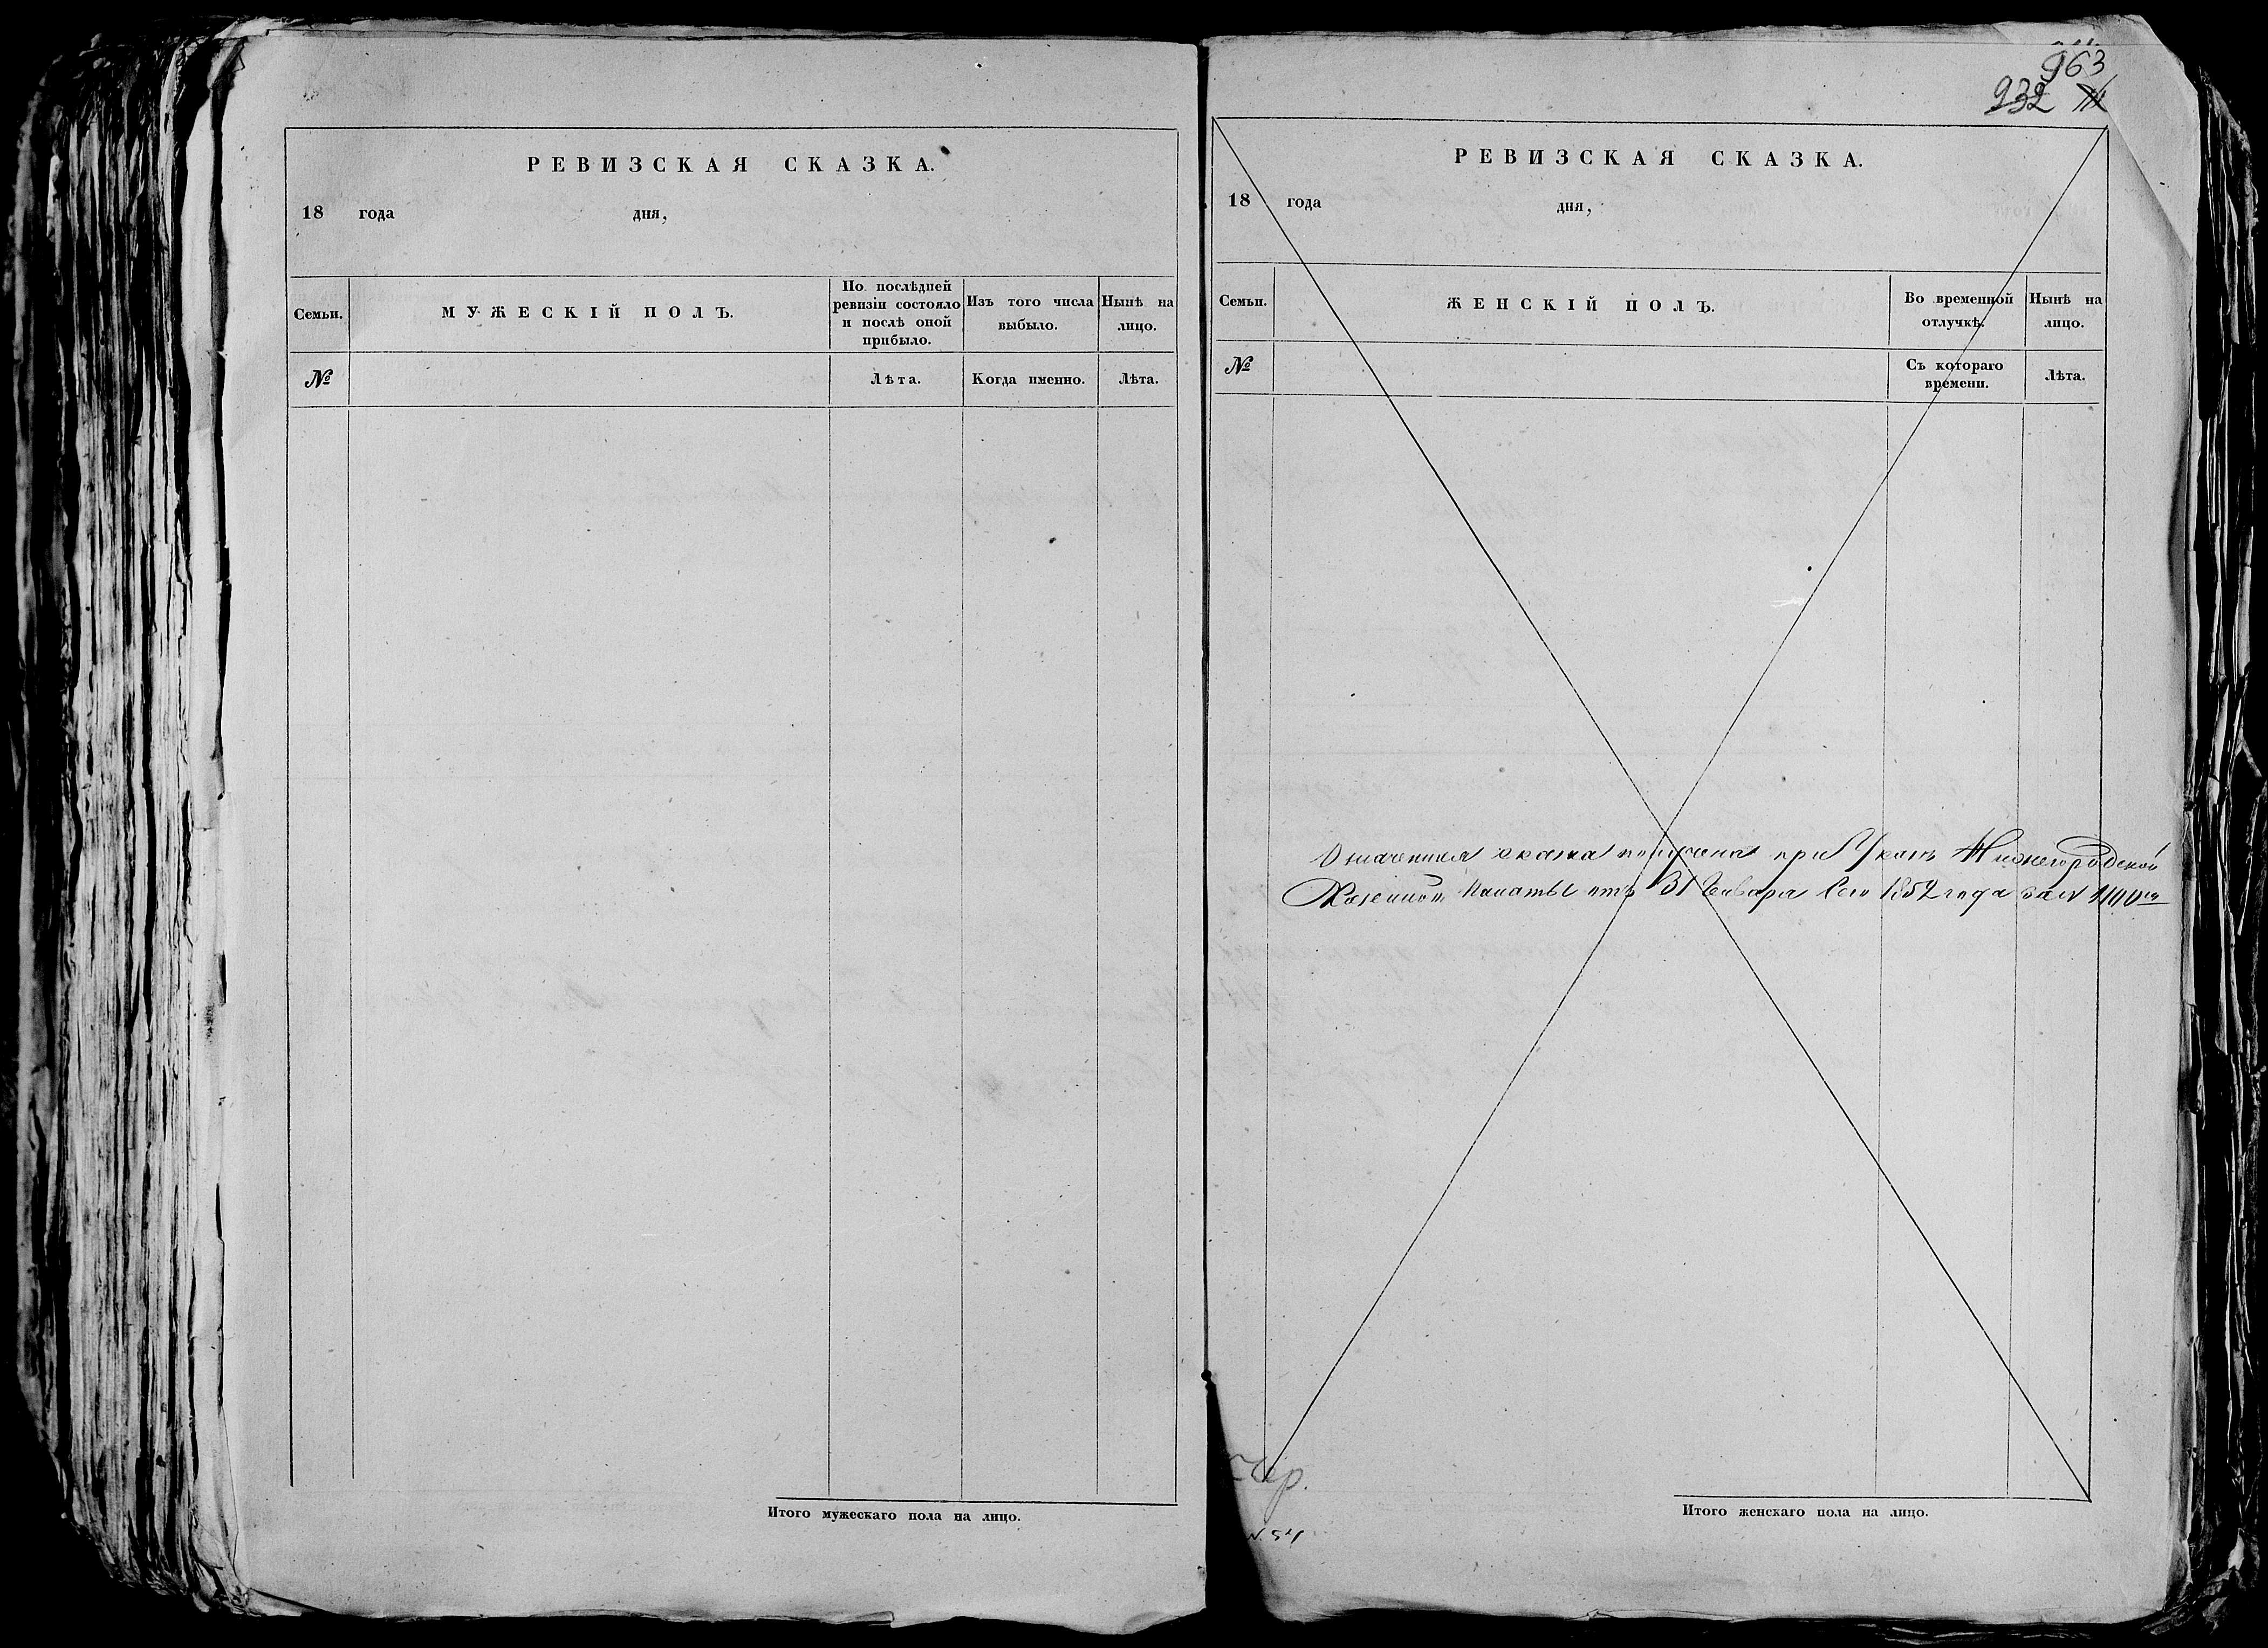 РЕВИЗСКАЯ СКАЗКА.
18 года дня,
Семьи.
МУЖЕСКІЙ ПОЛЪ.
По послѣдней ревизіи состояло и послѣ оной прибыло.
Изъ того числа выбыло.
Нынѣ на лицо.
№
Лѣта.
Когда именно.
Лѣта.
Итого мужескаго пола на лицо.
963
932
РЕВИЗСКАЯ СКАЗКА.
18 года дня,
Семьи.
ЖЕНСКІЙ ПОЛЪ.
Во временной отлучкѣ.
Нынѣ на лицо.
№
Съ котораго времени.
Лѣта.
Означенная сказка получена при Указѣ Нижегородской
Казенной Палаты отъ 31 Генваря сего 1852 года за №
Итого женскаго пола на лицо.